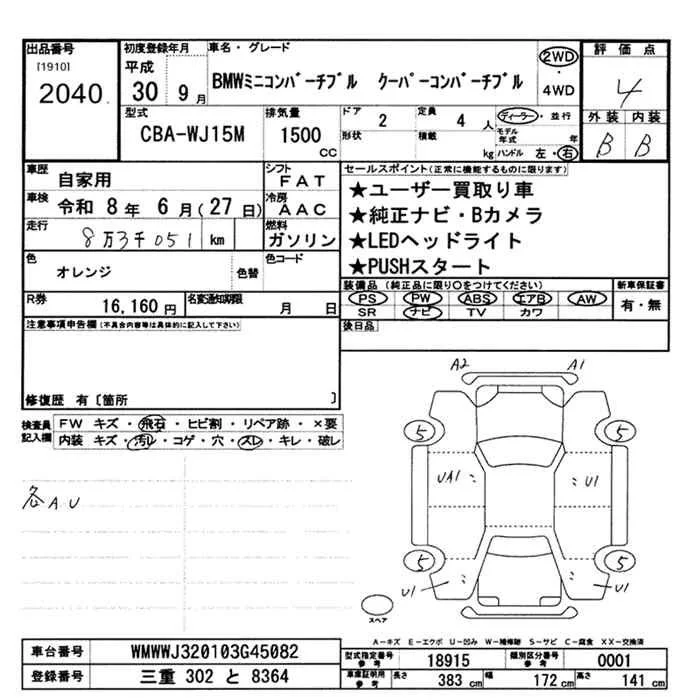 出品番号
[1910]
2040
初度登録年月
平成
30 9月
車名・グレード
BMWミニコンバーチブル クーパーコンバーチブル
2WD
・
4WD
評価点
4
外装 内装
B B
型式
CBA-WJ15M
排気量
1500
CC
ドア
2
形状
定員
4 人
積載
kg
ディーラー・並行
モデル年式 年
ハンドル 左・右
車歴
自家用
車検
令和 8年 6月(27日)
走行
8万3千051 km
シフト
FAT
冷房
AAC
燃料
ガソリン
色
オレンジ
色替
色コード
R券
16,160円
名変通知期限
月 日
セールスポイント(正常に機能するものに限ります)
★ユーザー買取り車
★純正ナビ・Bカメラ
★LEDヘッドライト
★PUSHスタート
装備品(純正品に限り○をつけてください)
PS PW ABS エアB AW
SR ナビ TV カワ
新車保証書
有・無
後日品
注意事項申告欄(不具合内容等は具体的に記入して下さい)
修復歴 有〔箇所 〕
検査員記入欄
FW キズ・飛石・ヒビ割・リペア跡・×要
内装 キズ・汚レ・コゲ・穴・スレ・キレ・破レ
各AU
A2 A1
5 5
UA1 U1
5 5
U1 U1
スペア
A－キズ E－エクボ U－凹み W－補修跡 S－サビ C－腐食 XX－交換済
車台番号
WMWWJ320103G45082
登録番号
三重 302 と 8364
型式指定番号
参考
18915
類別区分番号
参考
0001
車庫証明用
参考
長さ
383 cm
幅
172 cm
高さ
141 cm